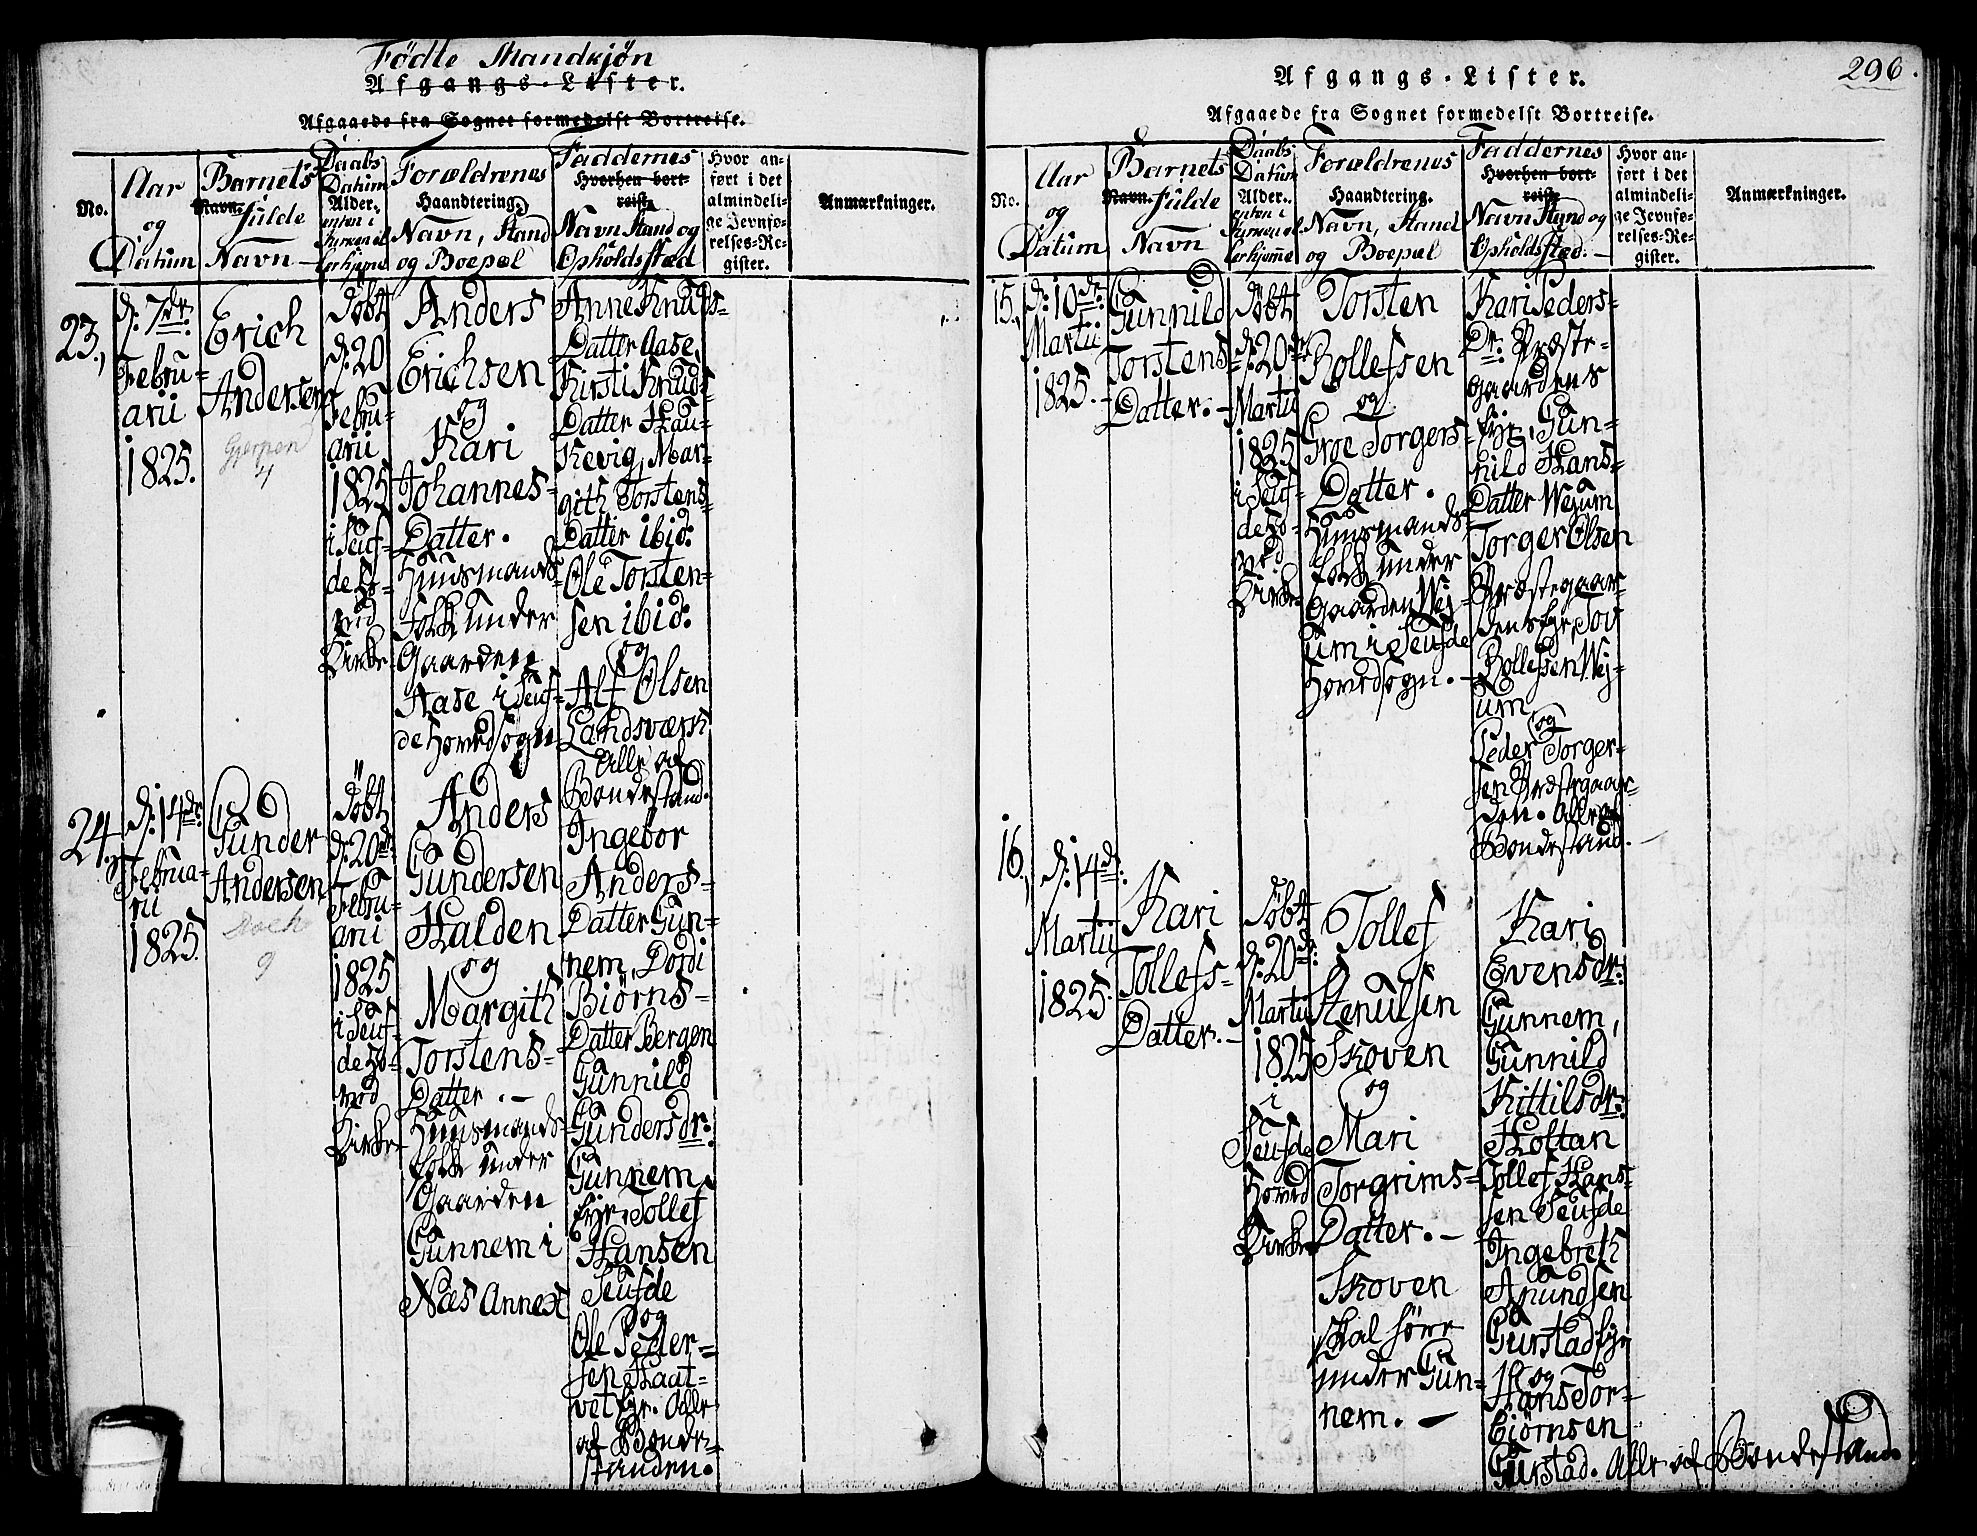 Fødte Mandkjøn
Afgangs-Lister.
Afgaaede fra Sognet formedelst Bortreise.
No.
Aar
og
Datum
Barnets
Navn. fulde
Navn
Daabs
Datum
Alder.
enten i
Forældrenes
Haandtering.
Navn, Stand
og Boepæl
Faddernes
Hvorhen bort-
reist.
Navn Stand og
Opholdssted
Hvor an-
ført i det
almindeli-
ge Jevnfø-
relses-Re-
gister.
Anmærkninger.
23.,
d: 7de
Febru-
arii
1825.
Erich
Andersen
Gjerpen
4
Døbt
d: 20
Febru-
arii
1825
i Seuf-
de Ho-
ved
Kirke
Anders
Erichsen
og
Kari
Johannes-
Datter.
Huusmands-
Folk under
Gaarden
Aase i Seuf-
de Hovedsogn
Anne Knuds-
Datter Aase,
Kirsti Knud-
Datter Hau-
Kevig, Mar-
gith Torstens-
Datter ibid:
Ole Torsten-
sen ibid:
og
Alf Olsen
Landsværk
Alle af
Bondestand.
24.,
d: 14de
Februa-
rii
1825.
Gunder
Andersen
9
Døbt
d: 20de
Febru-
arii
1825
i Seuf-
de Ho-
ved
Kirke
Anders
Gundersen
Halden
og
Margith
Torstens-
Datter. -
Huusmands-
Folk under
Gaarden
Gunnem i
Næs Annex
Ingebor
Anders-
Datter Gun-
nem, Dordi
Biørns-
Datter Bergen
Gunnild
Gundersdr:
Gunnem
Tollef
Hansen
Seufde
og
Ole Peder-
sen Haat-
vet Alle
af Bonde-
standen.
296.
Afgangs-Lister.
Afgaaede fra Sognet formedelst Bortreise.
No.
Aar
og
Datum
Barnets
Navn. fulde
Navn
Daabs
Datum
Alder.
enten i
Forældrenes
Haandtering.
Navn, Stand
og Boepæl
Faddernes
Hvorhen bort-
reist.
Navn Stand og
Opholdssted. -
Hvor an-
ført i det
almindeli-
ge Jevnfø-
relses-Re-
gister.
Anmærkninger.
15.,
d: 10de
Martii
1825. -
Gunnild
Torstens-
Datter. -
Døbt
d: 20de
Martii
1825
i Seuf-
de Ho-
ved
Kirke
Torsten
Rollefsen
og
Groe Torgers-
Datter.
Huusmands-
Folk under
Gaarden Wej-
um i Seufde
Hovedsogn. -
Kari Peders-
Dr: Præste-
gaardens
Gun-
hild Hans-
Datter Wejum
Torger Olsen
Præstegaar-
dens Tov
Rollefsen Wej-
um
og
Peder Torger-
sen Præstegaar-
den. Alle af
Bondestand.
16.,
d: 14de
Martii
1825.
Kari
Tollefs-
Datter. -
Døbt
d: 20de
Martii
1825
i
Seufde
Hoved
Kirke
Tollef
Stenulsen
Skoven
og
Mari
Torgrims-
Datter. -
Skoven
under Gun-
nem. -
Kari
Evensdr:
Gunnem,
Gunnild
Kittilsdr:
Holtan
Tollef Hans-
sen Seufde
Ingebreth
Anundsen
Gurstad
og
Hans Tor-
biørnsen
Gurstad. Alle af Bondestand